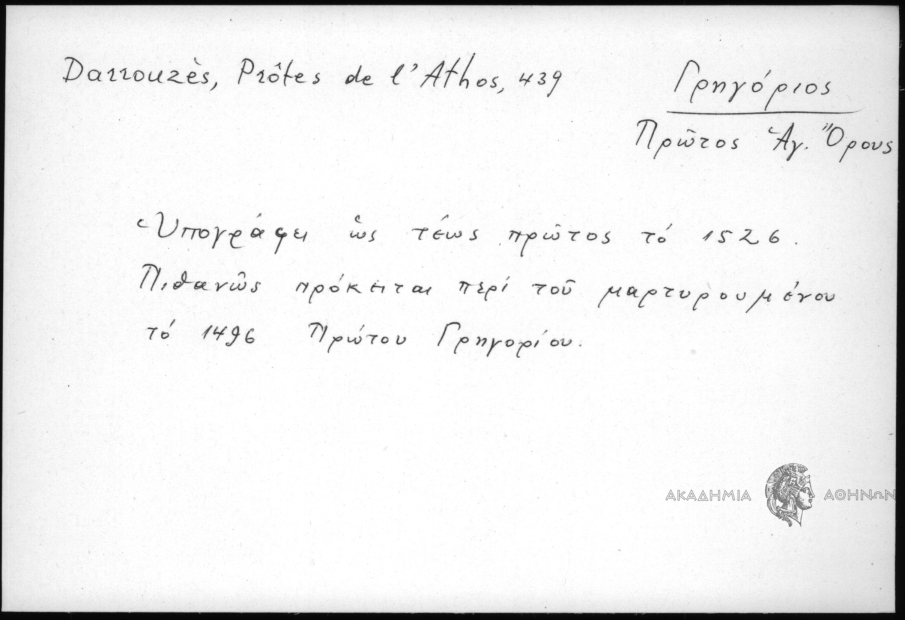 Darrouzès, Prôtes de l'Athos, 439
Γρηγόριος
Πρῶτος Ἁγ. Ὄρους
Ὑπογράφει ὡς τέως πρῶτος τό 1526.
Πιθανῶς πρόκειται περί τοῦ μαρτυρουμένου
τό 1496 Πρώτου Γρηγορίου.
ΑΚΑΔΗΜΙΑ ΑΘΗΝΩΝ